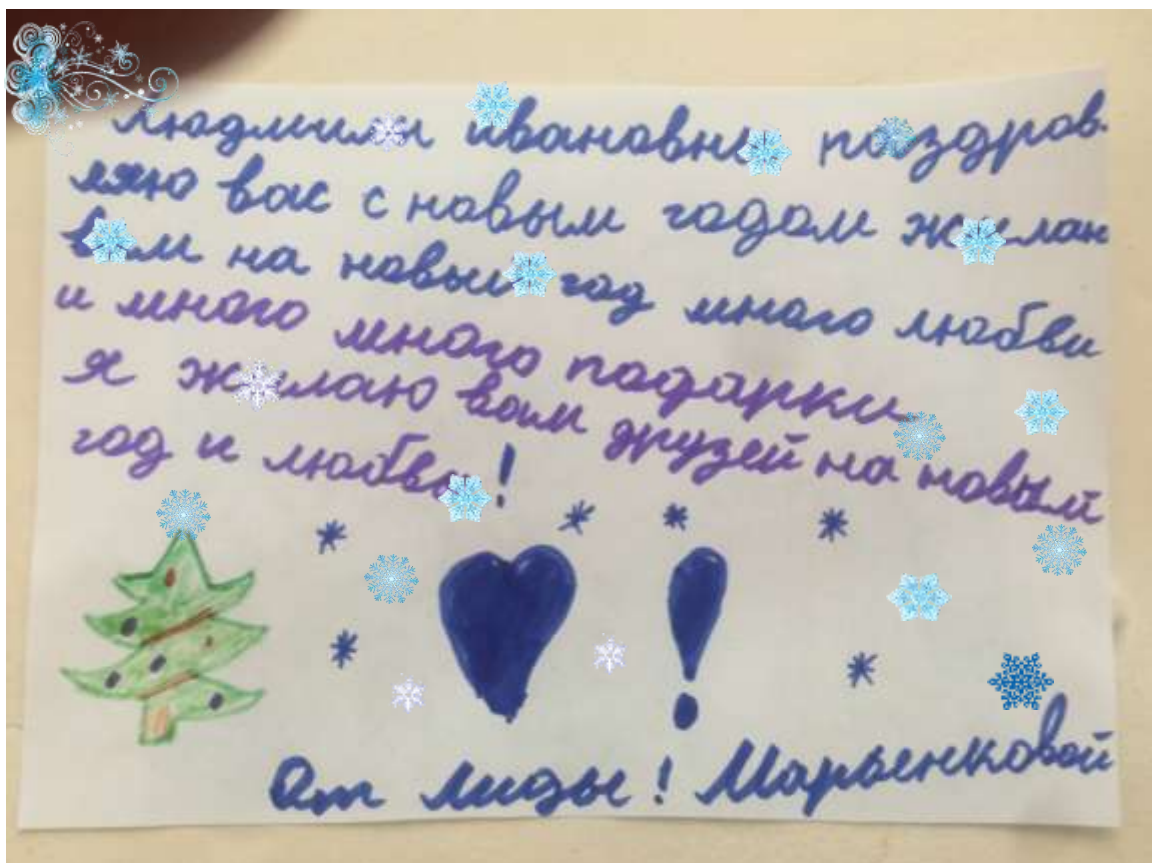 Людмила ивановна поздрав-
ляю вас с новым годом желаю
вам на новый год много любви
и много много подарки
я желаю вам друзей на новый
год и любви!
От Лиды! Марьенковой